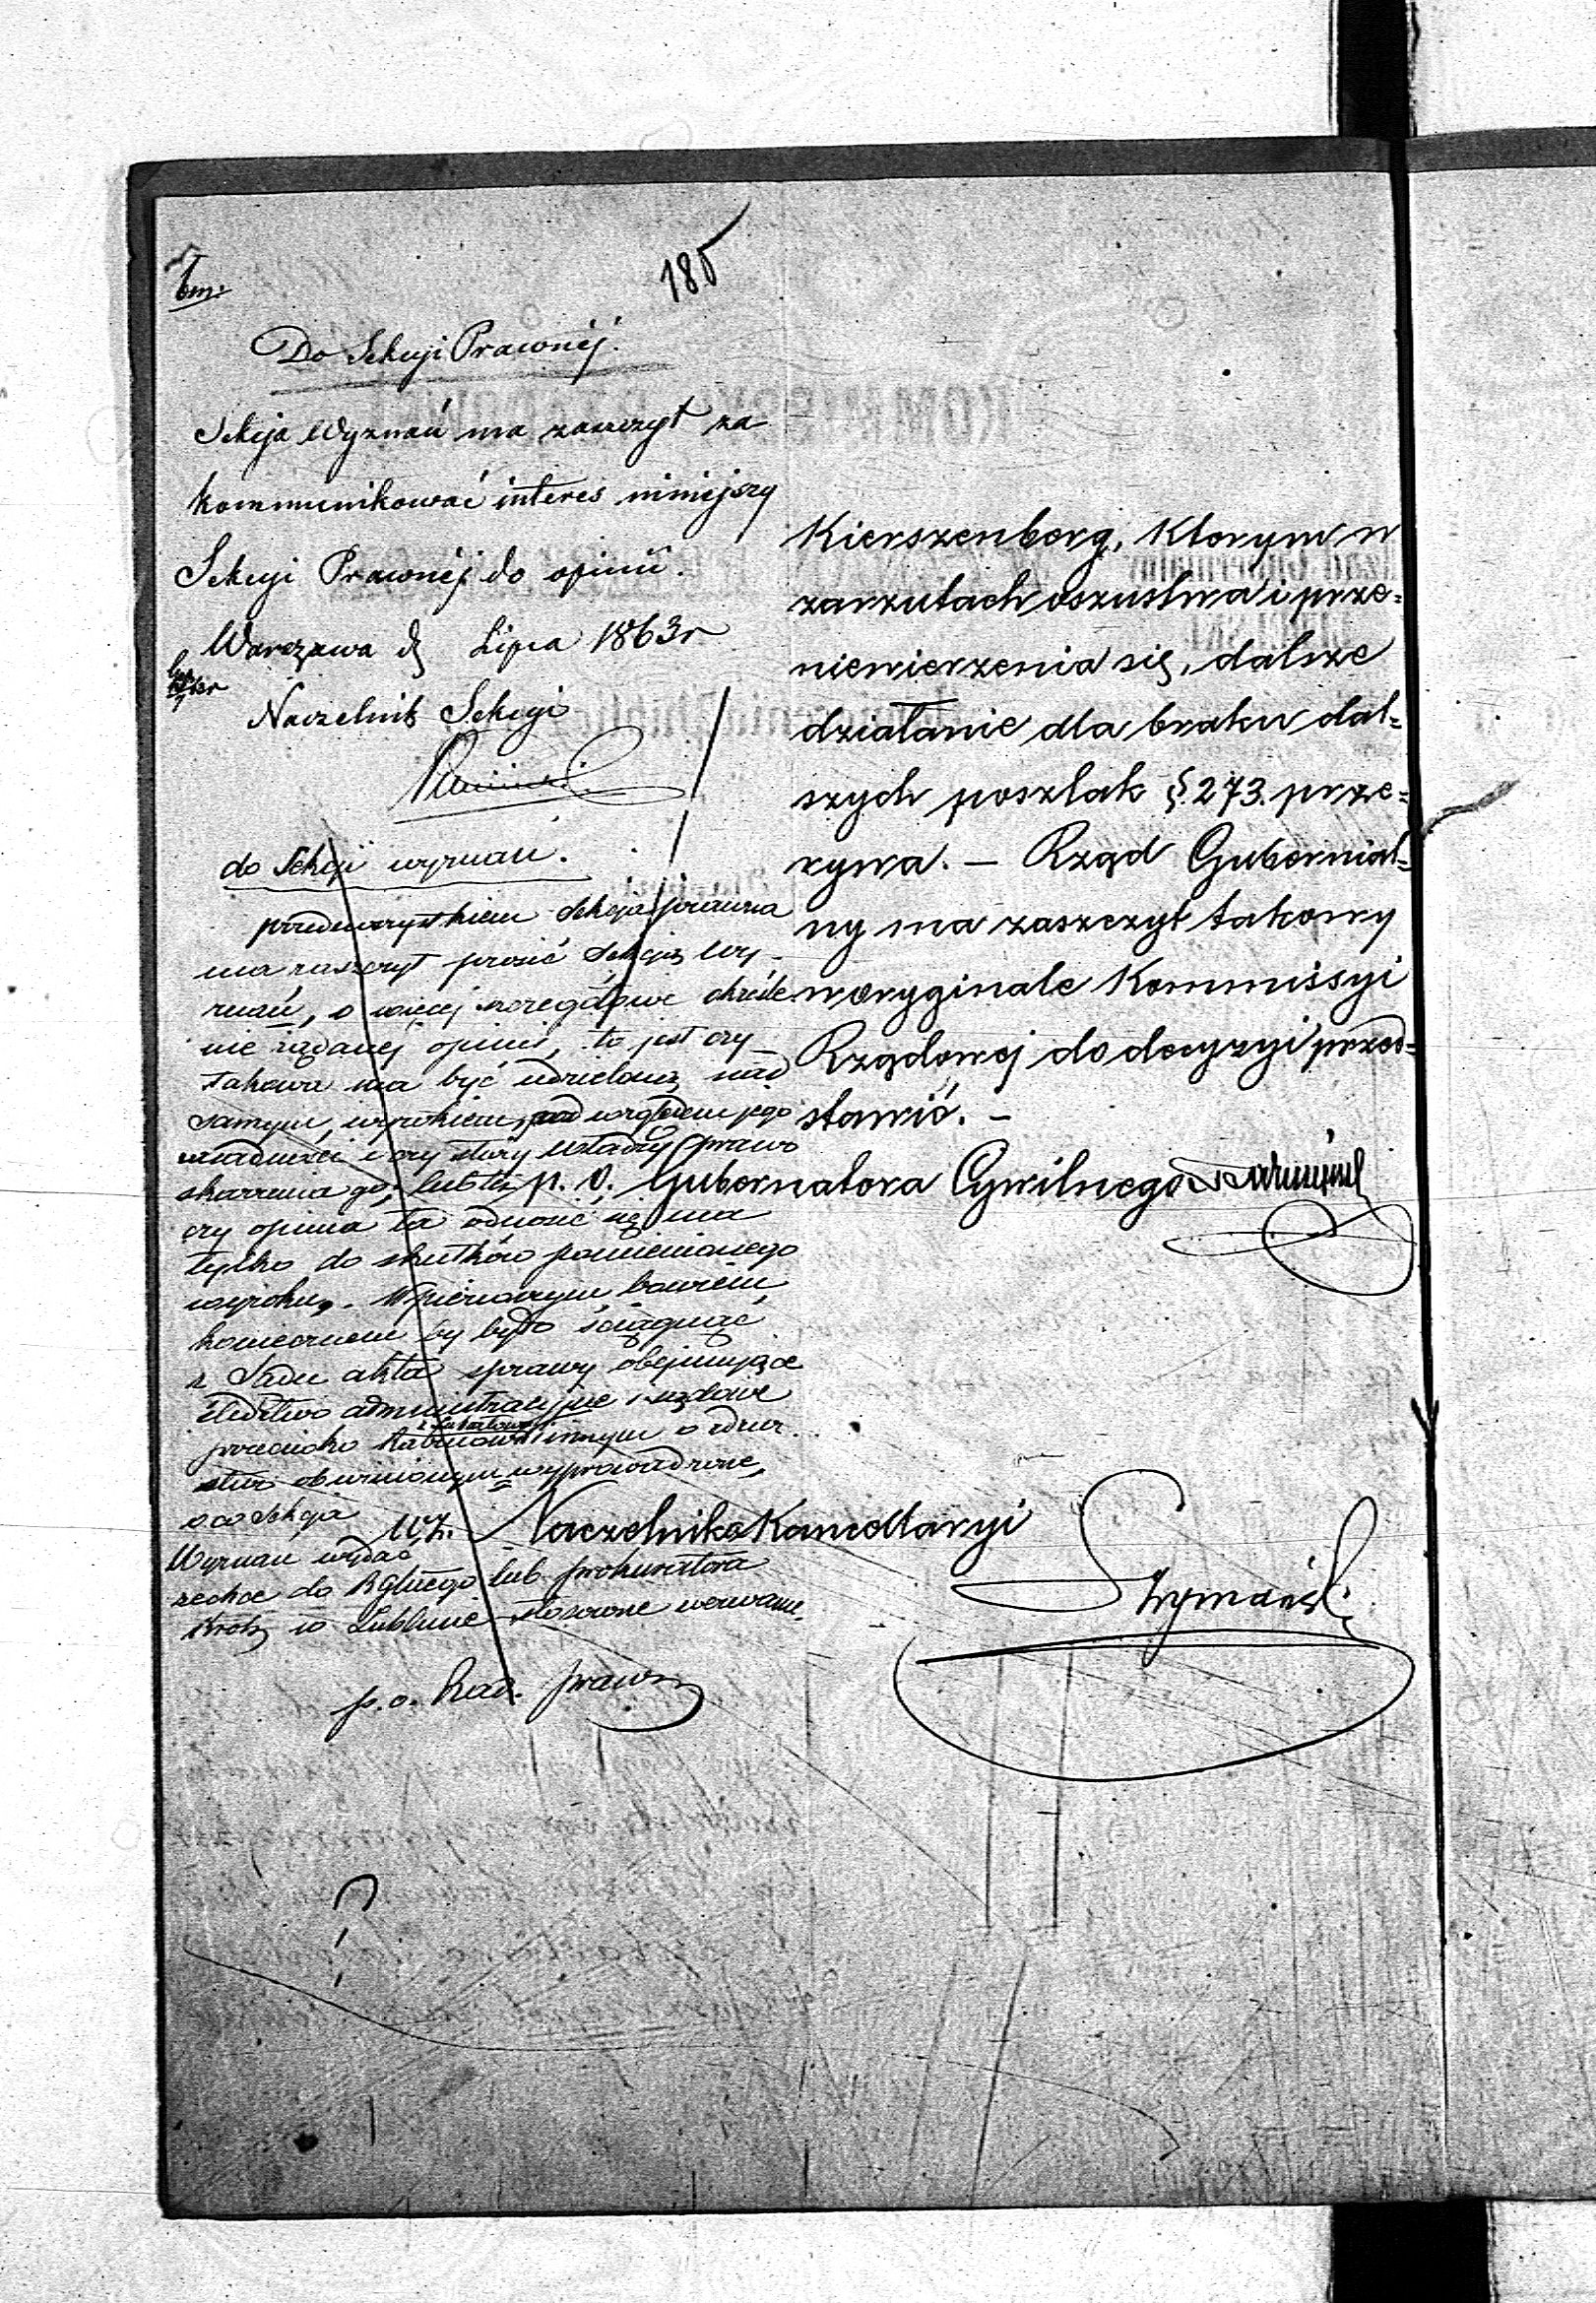 185
Do Sekcyi Prawnéj.
Sekcja Wyznań ma zaszczyt za
kommunikować interes niniejszy
Sekcyi Prawnéj do opinii.
Warszawa d Lipca 1863r
Naczelnik Sekcyi
do Sekcji wyznań.
przedewszystkiem Sekcja prawna
ma zaszczyt prosić Sekcję Wy-
znań, o więcej szczegółowe określe
nie żądanej opinii, to jest czy
takowa ma być udzieloną nad
samym wyrokiem, pod względem jego
zasadności i czy służy Władzy prawo
skarżenia go; lub też
czy opinia ta odnosić się ma
tylko do skutków pomienionego
wyroku. W pierwszym bowiem
koniecznem by było ściągnąć
z Sądu akta sprawy obejmujące
śledztwo administracyjne i sądowe
przeciwko Rabinowi z Lubartowa i innym o
obwinionym wyprowadzone,
o co Sekcja
Wyznań wydać
zechce do Rządu Głnego lub prokuratora
w Lublinie stosowne wezwanie.
p.o. Rad. prawn
Kierszenberg, Ktorym w
zarzutach oszustwa i prze=
niewierzenia się, dalsze
działanie dla braku dal=
szych poszlak §. 273. prze=
rywa. — Rząd Gubernial=
ny ma zaszczyt takowy
w oryginale Kommissyi
Rządowej do decyzyi przed=
stawić. —
p. o. Gubernatora Cywilnego
wz. Naczelnika Kancellaryi
Szymański